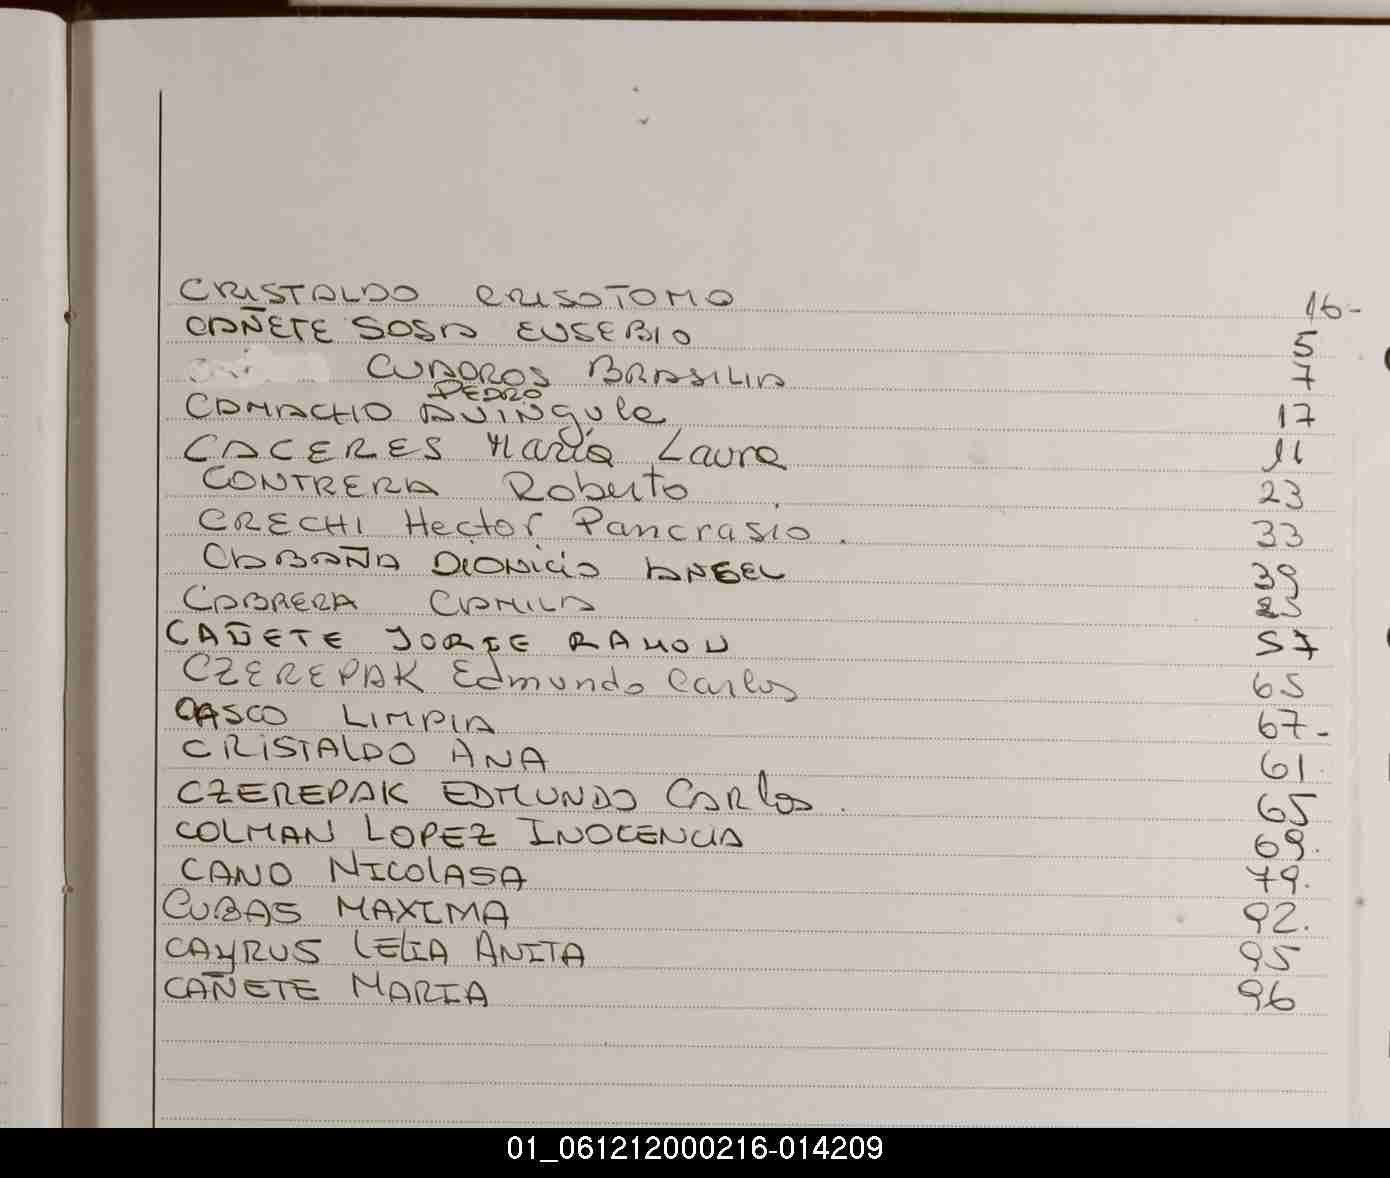 CRISTALDO CRISOTOMO 16-
CAÑETE SOSA EUSEBIO 5
CUADROS BRASILIA 7
PEDRO
CAMACHO 17
CACERES María Laura 11
CONTRERA Roberto 23
CRECHI Hector Pancrasio. 33
CABAÑA DIONICIO ANGEL 39
CABRERA CAMILA
CAÑETE JORGE RAMON 57
CZEREPAK Edmundo Carlos 65
CASCO LIMPIA 67-
CRISTALDO ANA 61.
CZEREPAK EDMUNDO CARlos. 65
COLMAN LOPEZ INOCENCIA 69.
CANO NICOLASA 79.
CUBAS MAXIMA 92.
CAYRUS LELIA ANITA 95
CAÑETE MARIA 96
01_061212000216-014209